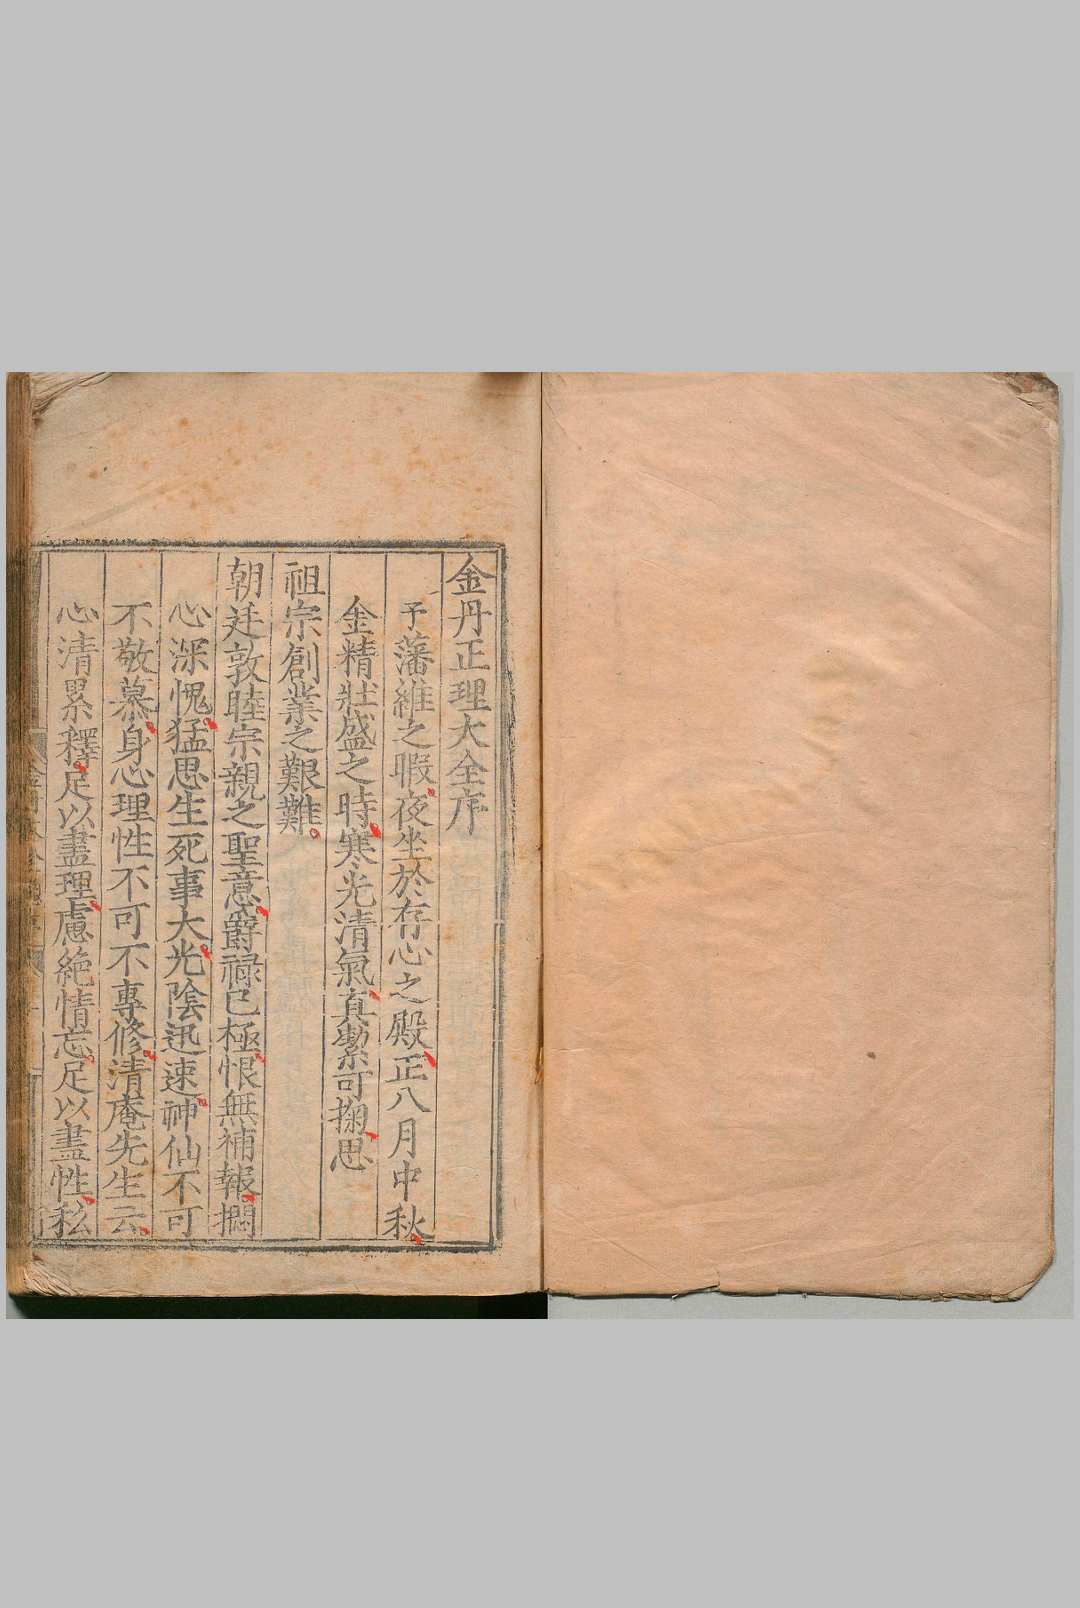 金丹正理大全序
予藩維之暇夜坐於存心之殿正八月中秋
金精壯盛之時寒光清氣真㓗可掬思
祖宗創業之艱難
朝廷敦睦宗親之聖意爵祿已極恨無補報撊
心深愧猛思生死事大光陰迅速神仙不可
不敬慕身心理性不可不專修清庵先生云
心清累釋足以盡理慮絕情忘足以盡性私